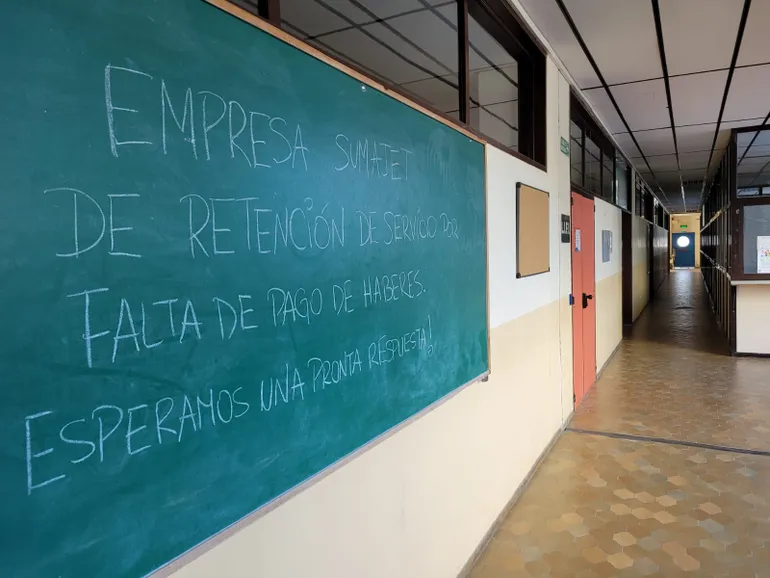 EMPRESA SUMAJET
DE RETENCIÓN DE SERVICIO POR
FALTA DE PAGO DE HABERES.
ESPERAMOS UNA PRONTA RESPUESTA!